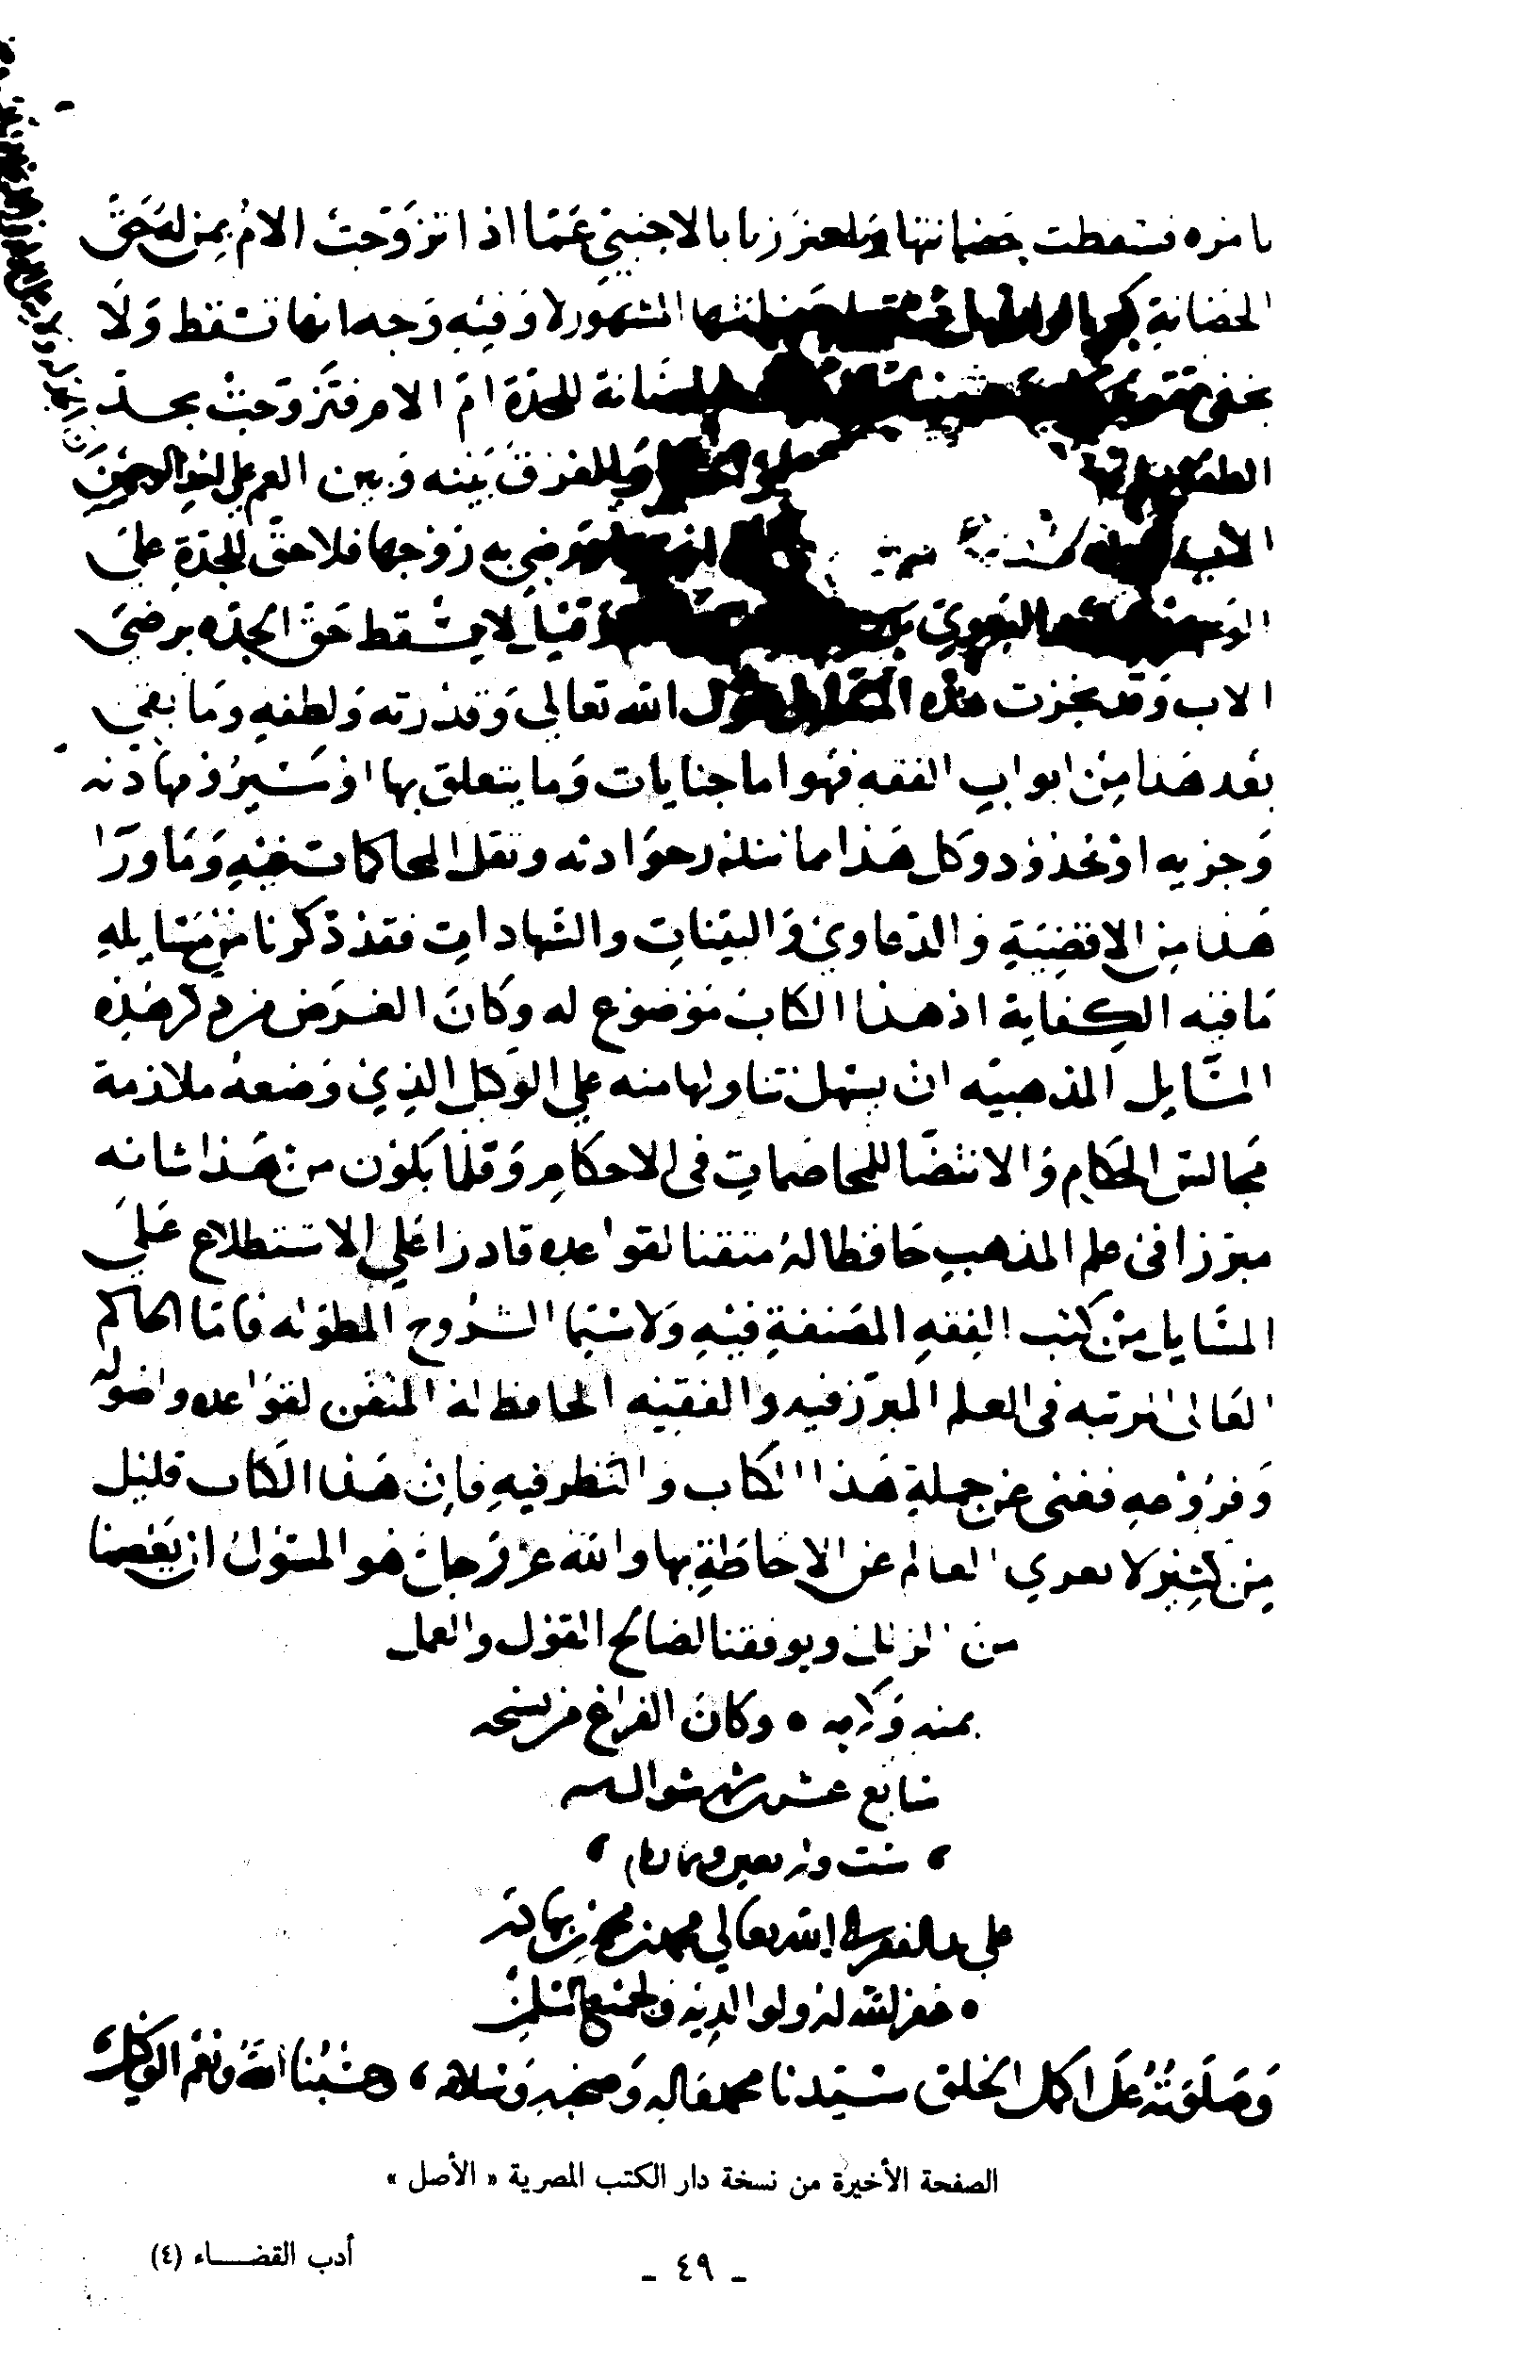 بأمره فتسقط حضانتها بالاجنبي عما اذا تزوجت الام بمن له حق
الحضانة المشهور لا وفيه وجه انها تسقط ولا
يخفى الحضانة للجدة ام الام فتزوجت بجد
الطفل والفرق بينه وبين العم على
الاب رضي به زوجها فلا حق للجدة على
البغوي لا يسقط حق الجده برضى
الاب وقد نجزت هذه الله تعالى وقدرته ولطفه وما بقي
بعد هذا من ابواب الفقه فهو اما جنايات وما يتعلق بها او سير ومهادنه
وجزيه او حدود وكل هذا مما تندر حوادثه وتقل المحاكمات فيه وما ورا
هذا من الاقضية والدعاوى والبينات والشهادات فقد ذكرنا من مسايله
ما فيه الكفاية اذ هذا الكتاب موضوع له وكان الغرض من ذكر هذه
المسايل المذهبيه ان يسهل تناولها منه على الوكيل الذي وضعه ملازمة
مجالس الحكام والانتصا للمخاصمات في الاحكام وقلما يكون من هذا شانه
مبرزا في علم المذهب حافظا له متقنا لقواعده قادرا على الاستطلاع على
المسايل من كتب الفقه المصنفة فيه ولا سيما الشروح المطوله فاما الحاكم
العالى المرتبه في العلم المبرز فيه والفقيه الحافظ له المتقن لقواعده واصوله
وفروعه فغنى عن جملة هذا الكتاب والنظر فيه فان هذا الكتاب قليل
من كثير لا يعرى العالم عن الاحاطة بها والله عز وجل هو المسؤل ان يعصمنا
من الزلل ويوفقنا لصالح القول والعمل
بمنه وكرمه ٥ وكان الفراغ من نسخه
سابع عشر شهر شوال سنه
ست واربعين وثمانمايه
على يد الفقير الى الله تعالى محمد بن محمد بن بهادر
٥ غفر الله له ولوالديه ولجميع المسلمين
وصلوته على اكمل الخلق سيدنا محمد واله وصحبه وسلامه ، حسبنا الله ونعم الوكيل
الصفحة الأخيرة من نسخة دار الكتب المصرية « الأصل »
ـ ٤٩ ـ
أدب القضـــاء (٤)